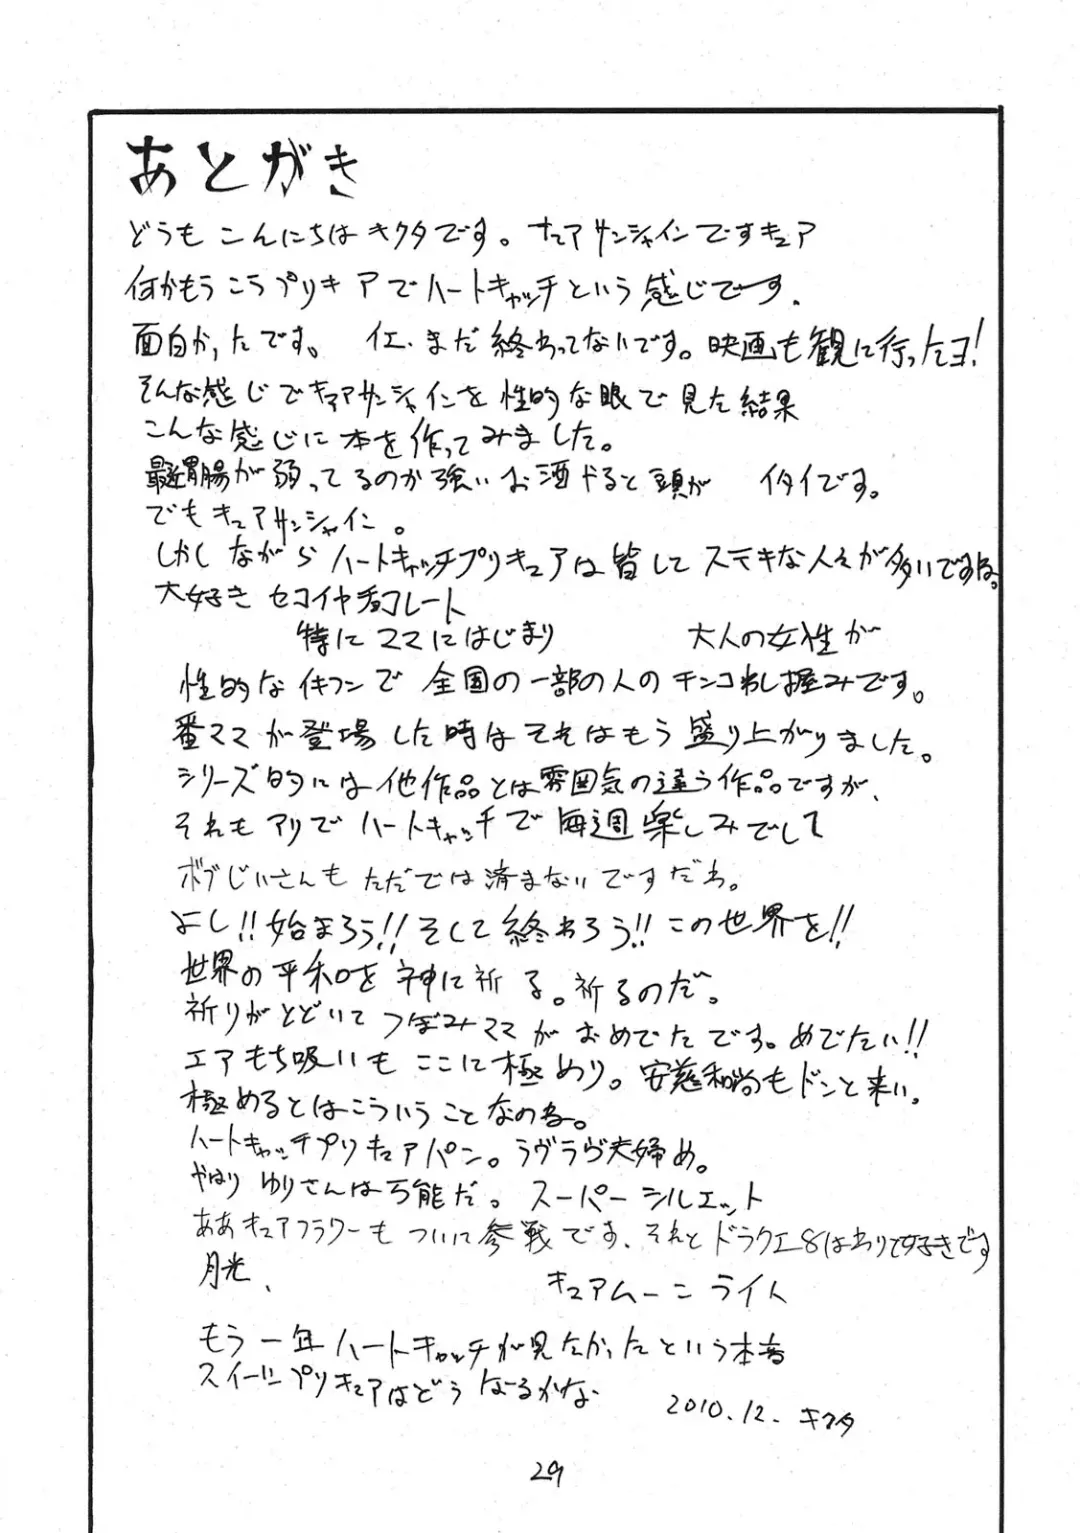 あとがき
どうも こんにちは キクタです。キュアサンシャインですキュア
何かもう こう プリキュアでハートキャッチという感じです。
面白かったです。 イエ、まだ終わってないです。映画も観に行ったヨ!
そんな感じでキュアサンシャインを性的な眼で見た結果
こんな感じに本を作ってみました。
最近胃腸が弱ってるのか強いお酒やると頭が イタイです。
でもキュアサンシャイン。
しかしながらハートキャッチプリキュアは皆してステキな人々が多いですね。
大好き セコイヤチョコレート
特にママにはじまり 大人の女性が
性的なイキフンで 全国の一部の人のチンコわし掴みです。
番ママが登場した時はそれはもう盛り上がりました。
シリーズ的には他作品とは雰囲気の違う作品ですが、
それもアリでハートキャッチで毎週楽しみでして
ボブじいさんもただでは済まないですだわ。
よし!!始まろう!!そして終わろう!!この世界を!!
世界の平和を神に祈る。祈るのだ。
祈りがとどいてつぼみママがおめでたです。めでたい!!
エアもち吸いもここに極めり。安慈和尚もドンと来い。
極めるとはこういうことなのね。
ハートキャッチプリキュアパン。ラヴラヴ夫婦め。
やはりゆりさんは万能だ。スーパーシルエット
ああキュアフラワーもついに参戦です、それとドラクエ8はわりと好きです
月光、 キュアムーンライト
もう一年ハートキャッチが見たかったという本音
スイートプリキュアはどうなるかな
2010.12. キクタ
29